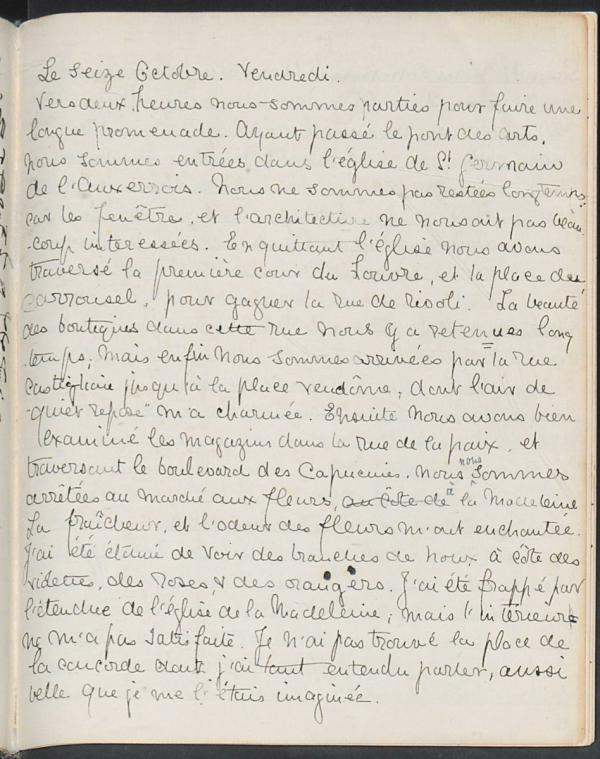 Le Seize Octobre. Vendredi.
Vers deux heures nous sommes parties pour faire une
longue promenade. Ayant passé le pont des arts,
nous sommes entrées dans l'église de St Germain
de l'Auxerrois. Nous ne sommes pas restées longtemps
car les fenêtre, et l'architecture ne nous ont pas beau
-coup interessées. En quittant l'église nous avons
traversé la première cour du Louvre, et la place des
Carrousel, pour gagner la rue de rivoli. La beauté
des boutiques dans cette rue nous y a retenues long
-temps; mais enfin nous sommes arrivées par la rue
Castiglione jusqu'à la place vendôme, dont l'air de
"quiet repose" m'a charmée. Ensuite nous avons bien
examiné les magazins dans la rue de la paix, et
traversant le boulevard des Capucines, nous nous sommes
arrêtées au marché aux fleurs, au côte de à la Madeleine
La fraîcheur, et l'odeur des fleurs m'ont enchantée.
J'ai été étonné de voir des branches de houx à côte des
violettes, des roses, & des orangers. J'ai été frappé par
l'étendue de l'église de la Madeleine; mais l'intérieure
ne m'a pas satisfaite. Je n'ai pas trouvé la place de
la concorde dont j'ai tant entendu parler, aussi
belle que je me l'étais imaginée.